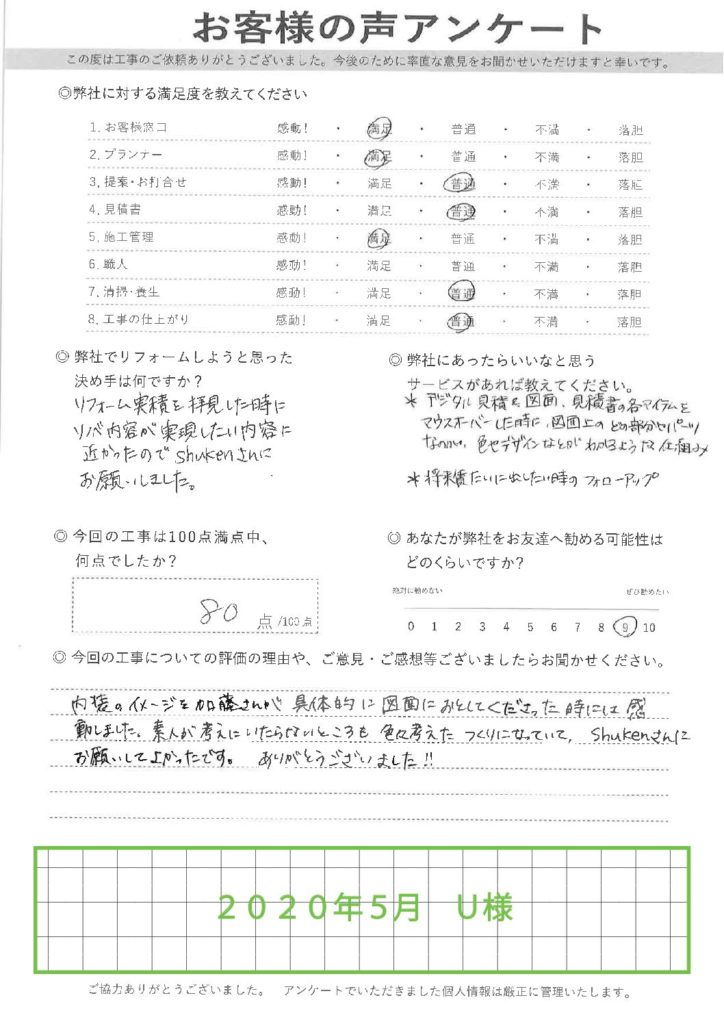 お客様の声アンケート
この度は工事のご依頼ありがとうございました。今後のために率直な意見をお聞かせいただけますと幸いです。
◎弊社に対する満足度を教えてください
1.お客様窓口 感動! ・ 満足 ・ 普通 ・ 不満 ・ 落胆
2.プランナー 感動! ・ 満足 ・ 普通 ・ 不満 ・ 落胆
3.提案・お打合せ 感動! ・ 満足 ・ 普通 ・ 不満 ・ 落胆
4.見積書 感動! ・ 満足 ・ 普通 ・ 不満 ・ 落胆
5.施工管理 感動! ・ 満足 ・ 普通 ・ 不満 ・ 落胆
6.職人 感動! ・ 満足 ・ 普通 ・ 不満 ・ 落胆
7.清掃・養生 感動! ・ 満足 ・ 普通 ・ 不満 ・ 落胆
8.工事の仕上がり 感動! ・ 満足 ・ 普通 ・ 不満 ・ 落胆
◎弊社でリフォームしようと思った
決め手は何ですか?
リフォーム実積を拝見した時に
リノベ内容が実現したい内容に
近かったのでshukenさんに
お願いしました。
◎弊社にあったらいいなと思う
サービスがあれば教えてください。
* デジタル見積&図面、見積書の各アイテムを
マウスオーバーした時に、図面上のどの部分やパーツ
なのか、色やデザインなどがわかるような仕組み
* 将来賃たいに出したい時のフォローアップ
◎今回の工事は100点満点中、
何点でしたか?
80 点 /100点
◎あなたが弊社をお友達へ勧める可能性は
どのくらいですか?
絶対に勧めない ぜひ勧めたい
0 1 2 3 4 5 6 7 8 9 10
◎今回の工事についての評価の理由や、ご意見・ご感想等ございましたらお聞かせください。
内装のイメージを加藤さんが具体的に図面におとしてくださった時には感
動しました。素人が考えにいたらないところも色々考えたつくりになっていて、Shukenさんに
お願いしてよかったです。 ありがとうございました!!
2020年5月 U様
ご協力ありがとうございました。 アンケートでいただきました個人情報は厳正に管理いたします。